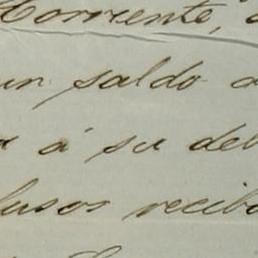 Corriente,
un saldo
á su deb
lusos recibo